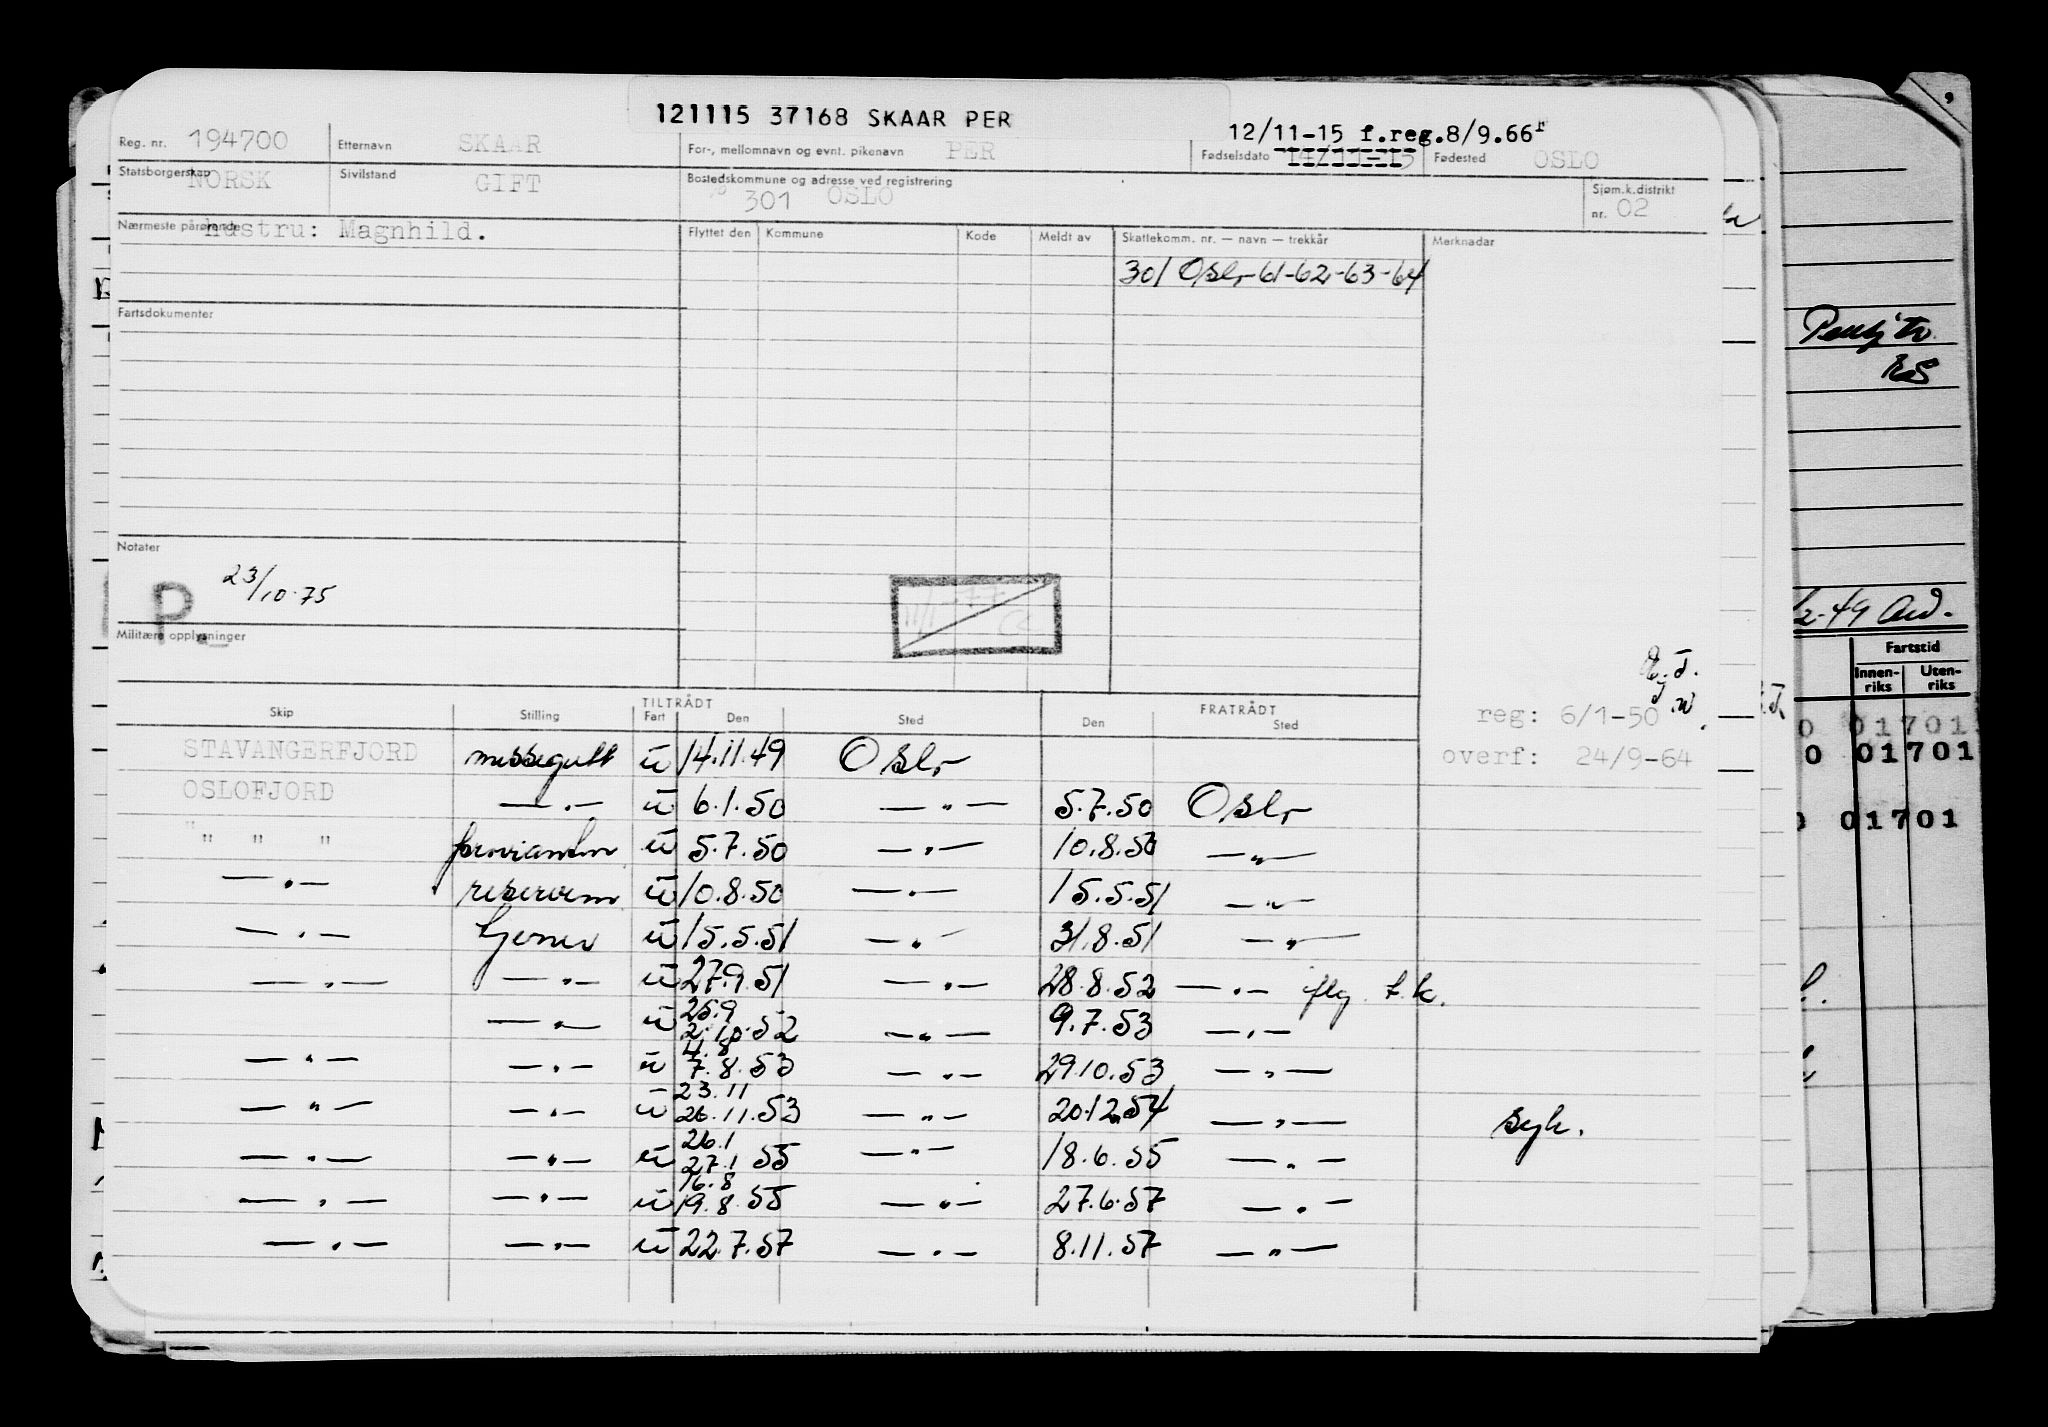 121115 37168 SKAAR PER
12/11-15 f.reg.8/9.66
Reg. nr. 194700 Etternavn SKAAR For-, mellomnavn og evnt. pikenavn PER Fødselsdato 14/11-15 Fødested OSLO
Statsborgerskap NORSK Sivilstand GIFT Bostedskommune og adresse ved registrering 301 OSLO Sjøm.k.distrikt nr. 02
Nærmeste pårørende hustru: Magnhild. Flyttet den Kommune Kode Meldt av Skattekomm. nr. — navn — trekkår Merknadar
301 Oslo 61-62-63-64
Fartsdokumenter
Notater
P. 23/10.75
11/1-77
Militære opplysninger
TILTRÅDT FRATRÅDT
Skip Stilling Fart Den Sted Den Sted
reg: 6/1-50
overf: 24/9-64
STAVANGERFJORD messegutt u 14.11.49 Oslo
OSLOFJORD —"— u 6.1.50 —"— 5.7.50 Oslo
" " " u 5.7.50 —"— 10.8.50 —"—
—"— u 10.8.50 —"— 15.5.51 —"—
—"— u 15.5.51 —"— 31.8.51 —"—
—"— —"— u 27.9.51 —"— 28.8.52 —"— f.k.
—"— u 25.9 2.10.52 —"— 9.7.53 —"—
—"— —"— u 4.8 7.8.53 —"— 29.10.53 —"—
—"— —"— u 23.11 26.11.53 —"— 20.12.54 —"— syk.
—"— —"— u 26.1 27.1 55 —"— 18.6.55 —"—
—"— —"— u 16.8 19.8.55 —"— 27.6.57 —"—
—"— —"— u 22.7.57 —"— 8.11.57 —"—
RS
2-49
Fartstid
Innen-riks Uten-riks
0 01701
0 01701
01701